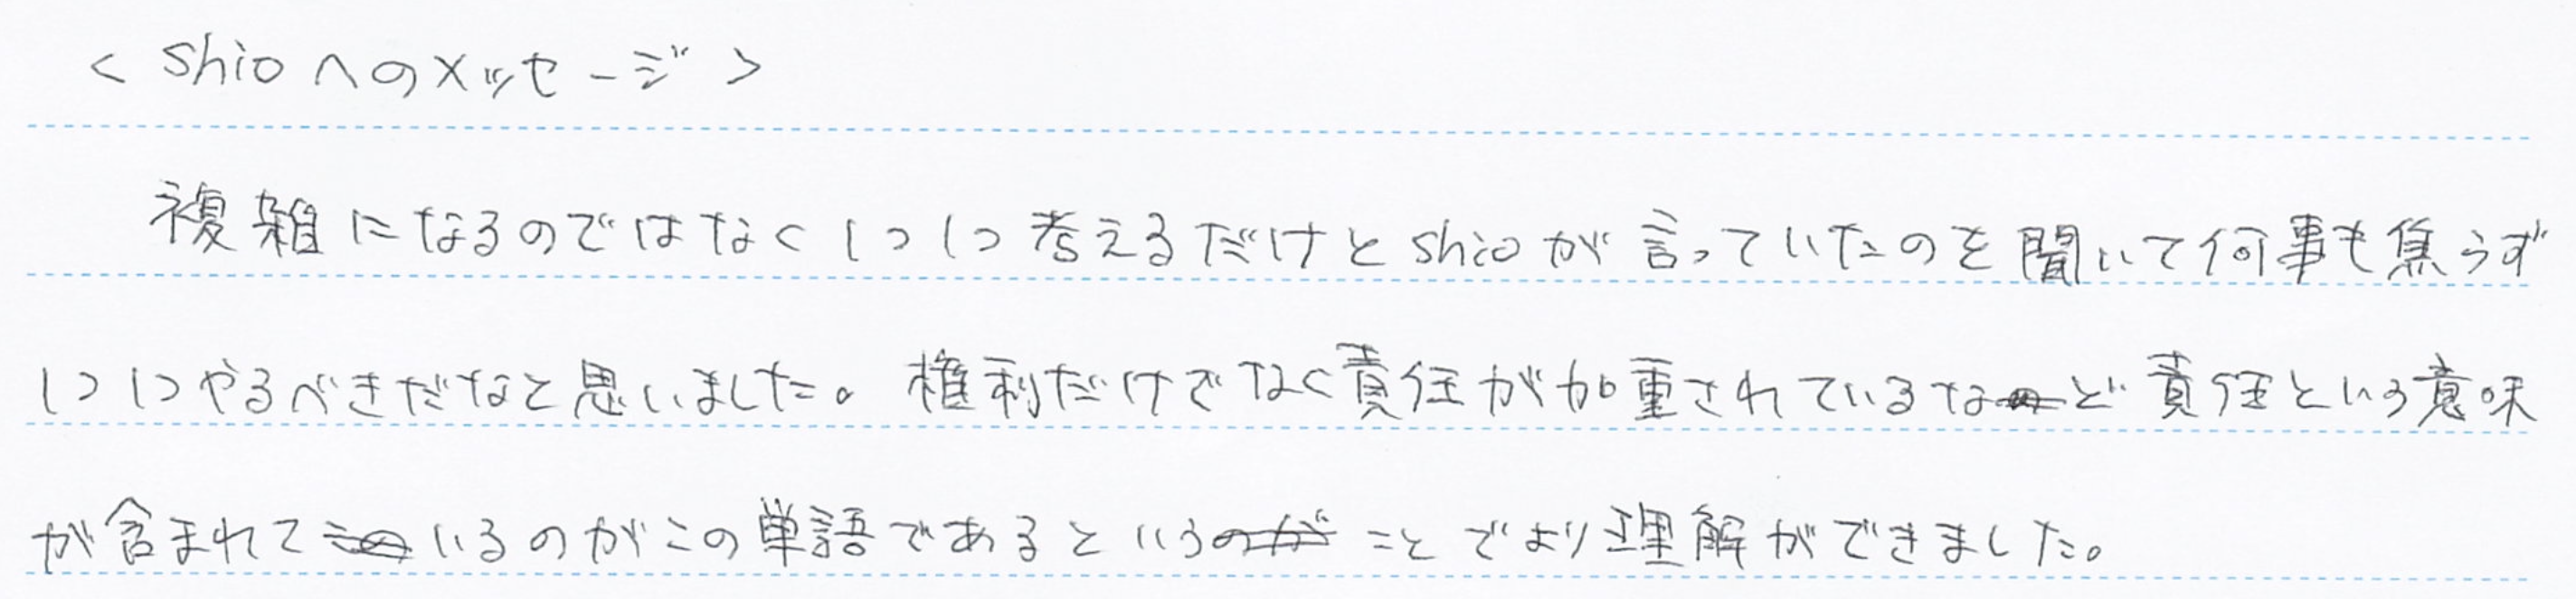 < shioへのメッセージ >
複雑になるのではなく1つ1つ考えるだけとshioが言っていたのを聞いて何事も焦らず
1つ1つやるべきだなと思いました。権利だけでなく責任が加重されているなど責任という意味
が含まれているのがこの単語であるということでより理解ができました。